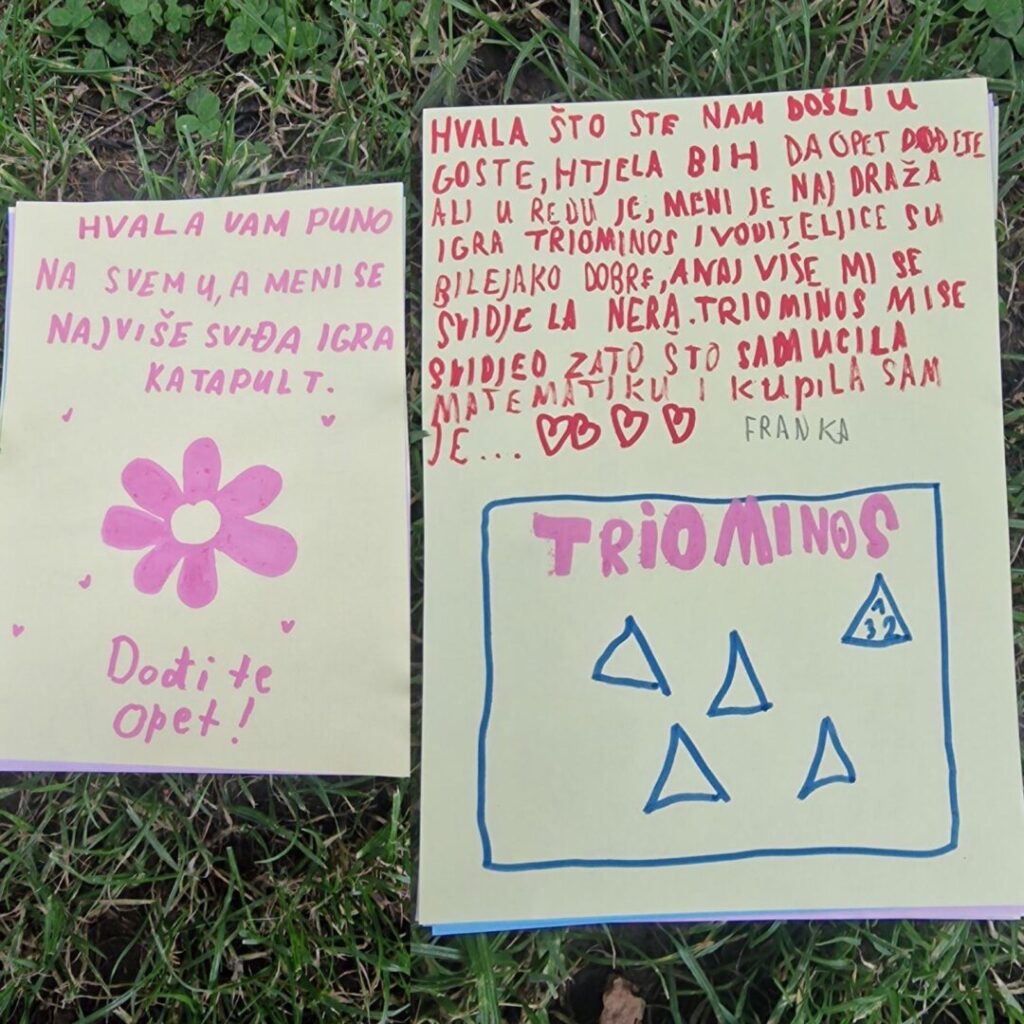 HVALA VAM PUNO
NA SVEMU, A MENI SE
NAJVIŠE SVIĐA IGRA
KATAPULT.
Dođite
Opet!
HVALA ŠTO STE NAM DOŠLI U
GOSTE, HTJELA BIH DA OPET DOĐETE
ALI U REDU JE, MENI JE NAJ DRAŽA
IGRA TRIOMINOS I VODITELJICE SU
BILE JAKO DOBRE, A NAJ VIŠE MI SE
SVIDJE LA NERA. TRIOMINOS MI SE
SVIDJEO ZATO ŠTO SAM UCILA
MATEMATIKU I KUPILA SAM
JE...
FRANKA
TRIOMINOS
1
3 2